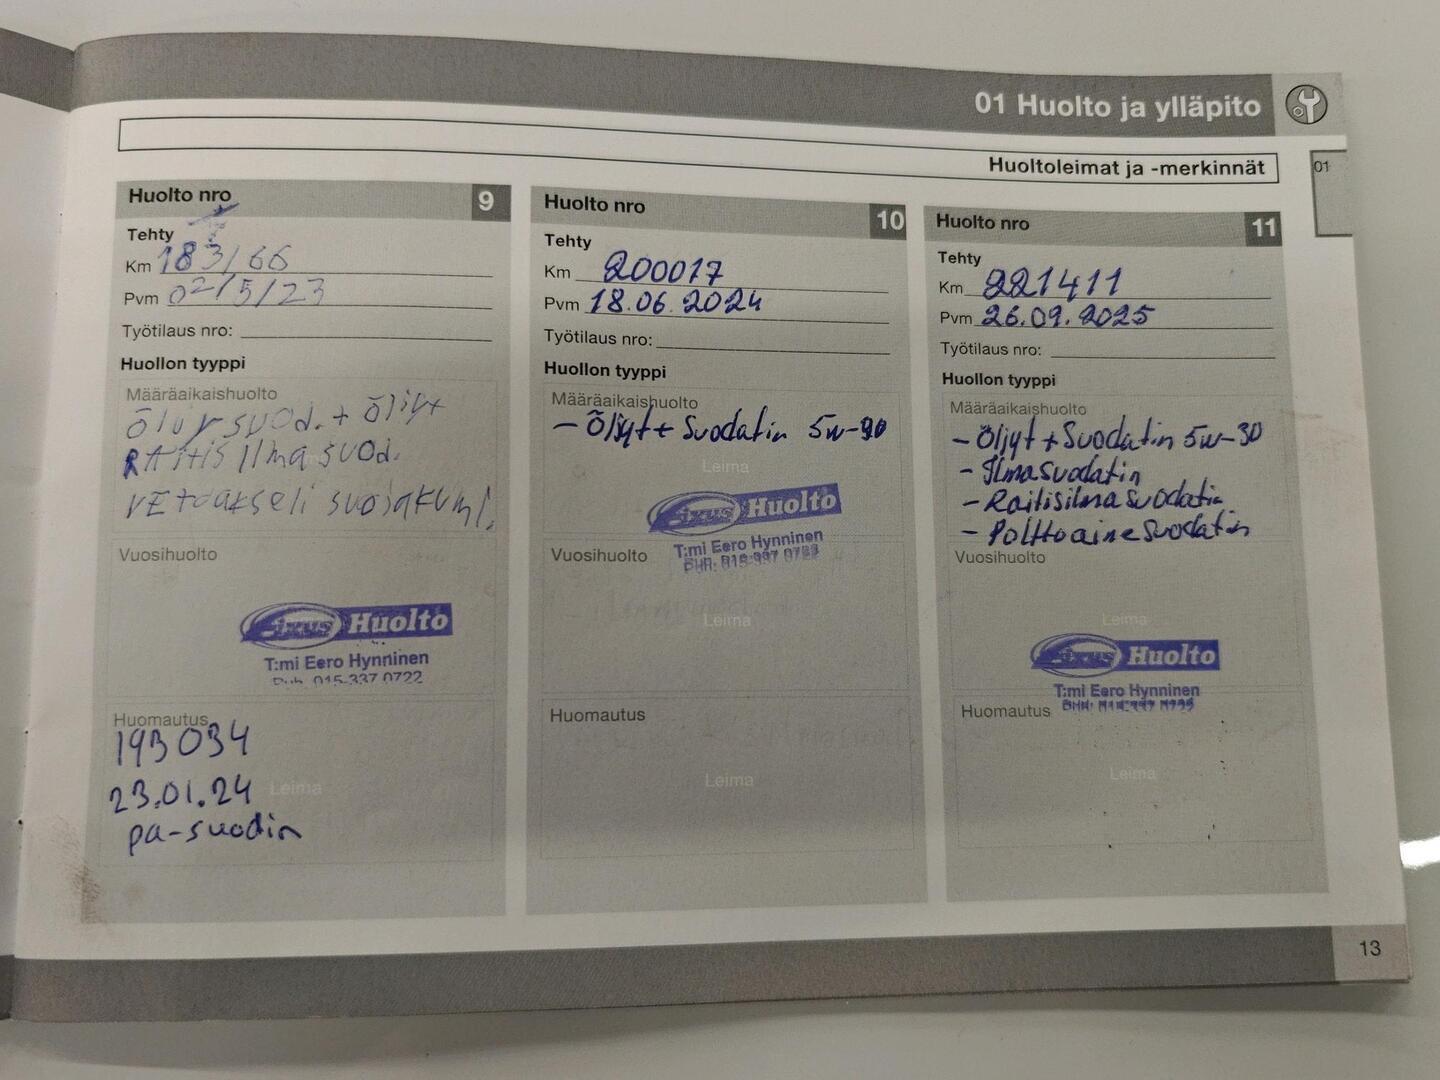 01 Huolto ja ylläpito
Huoltoleimat ja -merkinnät
01
Huolto nro 9
Tehty
Km 183/66
Pvm 02/5/23
Työtilaus nro:
Huollon tyyppi
Määräaikaishuolto
suod. + öljyt
Raitis ilma suod.
VEtoakseli suojakumi.
Vuosihuolto
Fixus Huolto
T:mi Eero Hynninen
Puh. 015-337 0722
Huomautus
193034
23.01.24
Leima
pa-suodin
Huolto nro 10
Tehty
Km 200017
Pvm 18.06.2024
Työtilaus nro:
Huollon tyyppi
Määräaikaishuolto
- Öljyt + Suodatin
Leima
Fixus Huolto
T:mi Eero Hynninen
Vuosihuolto
Leima
Huomautus
Leima
Huolto nro 11
Tehty
Km 221411
Pvm 26.09.2025
Työtilaus nro:
Huollon tyyppi
Määräaikaishuolto
- Öljyt + Suodatin 5w-30
- Ilmasuodatin
- Raitisilmasuodatin
- Polttoainesuodatin
Vuosihuolto
Leima
Fixus Huolto
T:mi Eero Hynninen
Huomautus
Leima
13